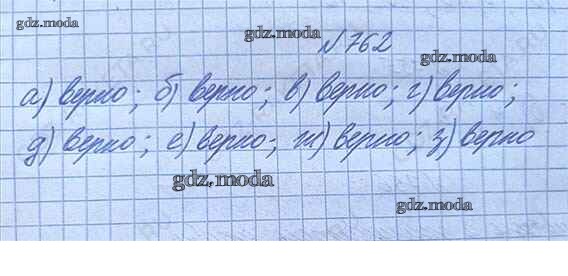 gdz.moda
gdz.moda
№ 762
gdz.moda
а) верно; б) верно; в) верно; г) верно;
д) верно; е) верно; ж) верно; з) верно
gdz.moda
gdz.moda